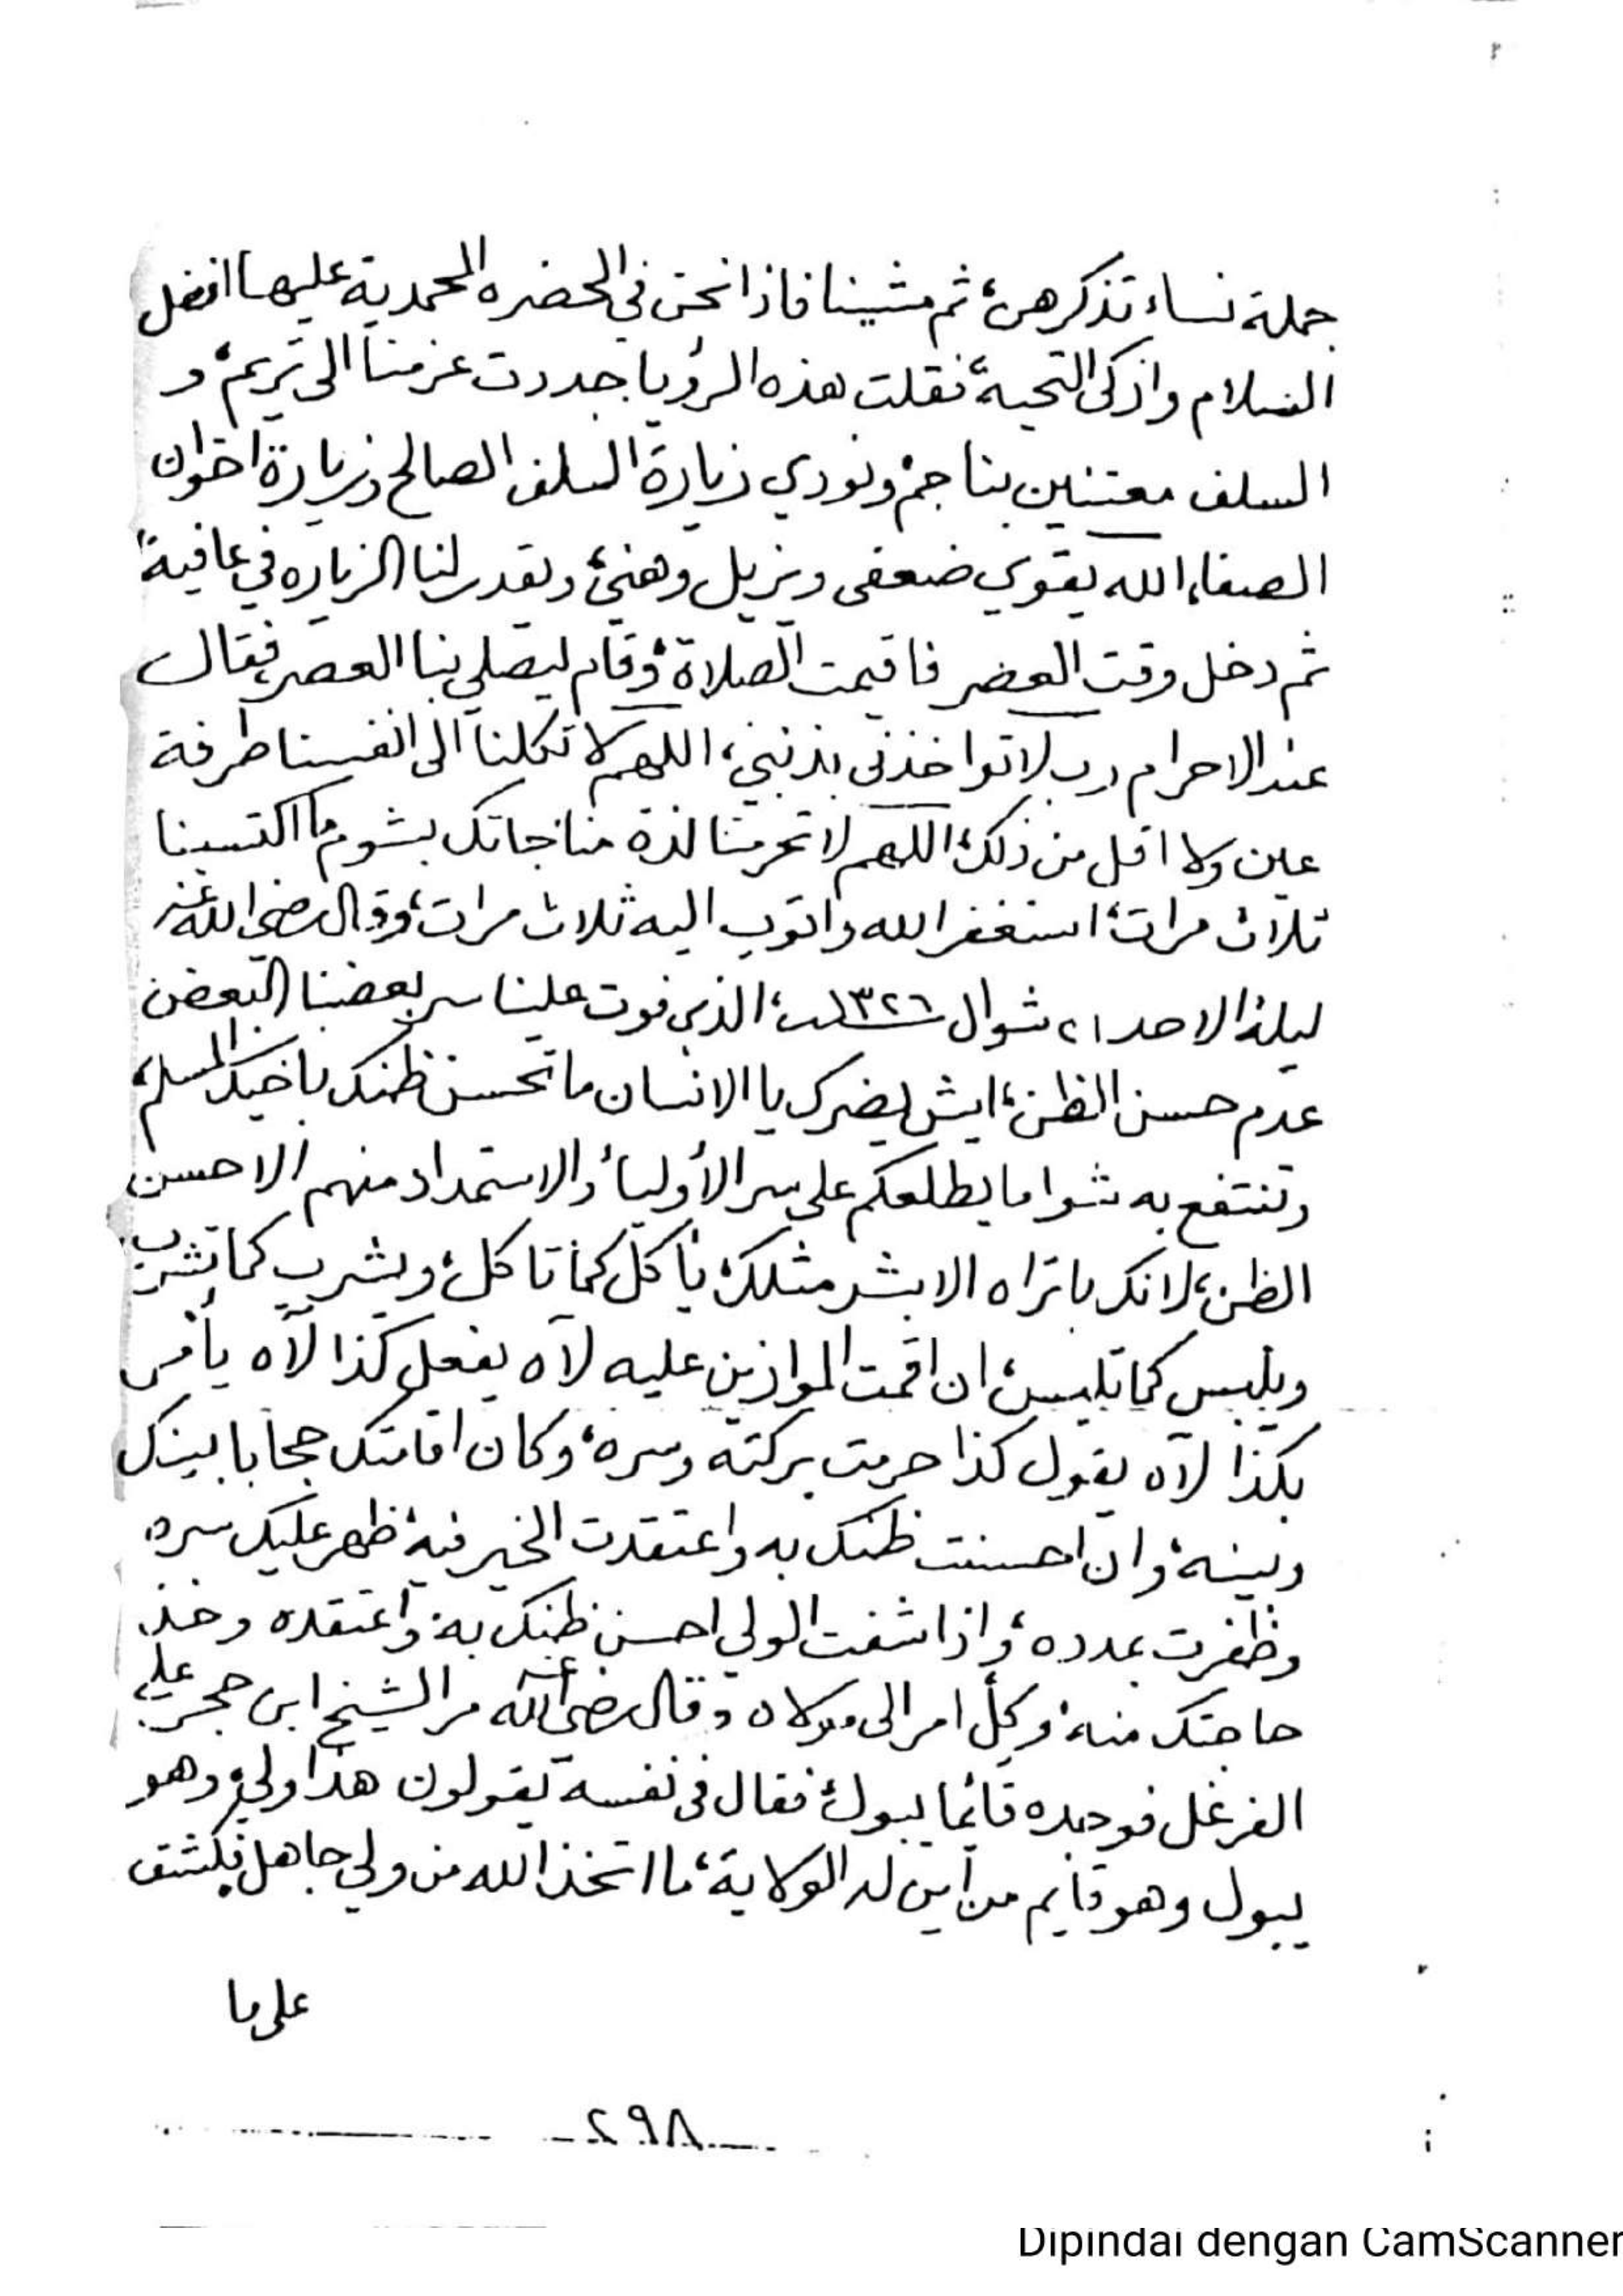 جملة نساء تذكرهن، ثم مشينا فاذا نحن في الحضره المحمدية عليها افضل
السلام وازكى التحية، فقلت هذه الرؤيا جددت عزمنا الى تريم، و
السلف معتنين بنا جم، ونودي زيارة السلف الصالح وزيارة اخوان
الصفاء، الله يقوي ضعفى ويزيل وهني، ويقدر لنا الزياره في عافية،
ثم دخل وقت العصر فاقيمت الصلاة، وقام ليصلي بنا العصر، فقال
عند الاحرام رب لا تواخذنى بذنبي، اللهم لا تكلنا الى انفسنا طرفة
عين ولا اقل من ذلك، اللهم لا تحرمنا لذة مناجاتك بشوم ما اكتسبنا
ثلاث مرات، استغفر الله واتوب اليه ثلاث مرات، وقال رضي الله عنه
ليلة الاحد ٢١ شوال ١٣٢٦، الذي فوت علينا سر بعضنا البعض
عدم حسن الظن، ايش يضرك يا الانسان ما تحسن ظنك باخيك المسلم،
وتنتفع به شوا ما يطلعكم على سر الأولياء والاستمداد منهم الا حسن
الظن، لانك ما تراه الا بشر مثلك، يأكل كما تاكل، ويشرب كما تشرب،
ويلبس كما تلبس، ان اقمت الموازين عليه لآه يفعل كذا لآه يأمر
بكذا لآه يقول كذا حرمت بركته وسره، وكان اقامتك حجابا بينك
وبينه، وان احسنت ظنك به واعتقدت الخير فيه، ظهر عليك سره،
وظفرت بمدده، واذا شفت الولي احسن ظنك به، واعتقده وخذ
حاجتك منه، وكل امر الى مولاه وقال رضي الله عنه مر الشيخ ابن حجر على
الفرغل فوجده قائما يبول، فقال فى نفسه يقولون هذا ولي، وهو
يبول وهو قايم من أين له الولاية، ما اتخذ الله من ولي جاهل، فكشف
على ما
٢٩٨
Dipindai dengan CamScanner